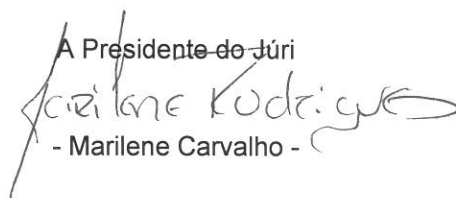 A Presidente do Júri
Marilene Rodrigues
- Marilene Carvalho -